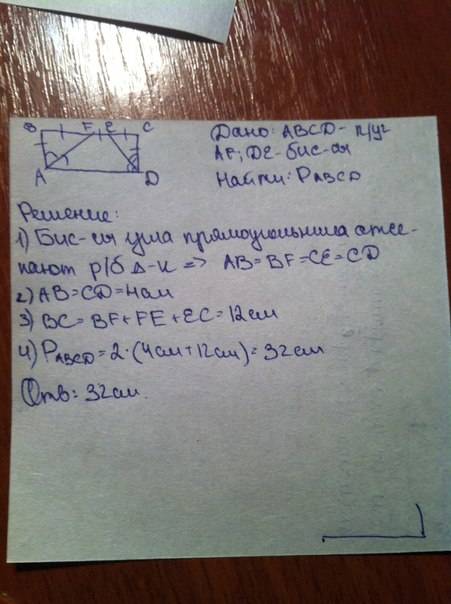 B F E C
A D
Дано: ABCD - п/уг
AF; DE - бис-ая
Найти: PABCD
Решение:
1) Бис-ия угла прямоугольника отсе-
кают р/б Δ-к => AB=BF=CE=CD
2) AB=CD=4см
3) BC=BF+FE+EC=12см
4) PABCD=2·(4см+12см)=32см
Отв: 32см.